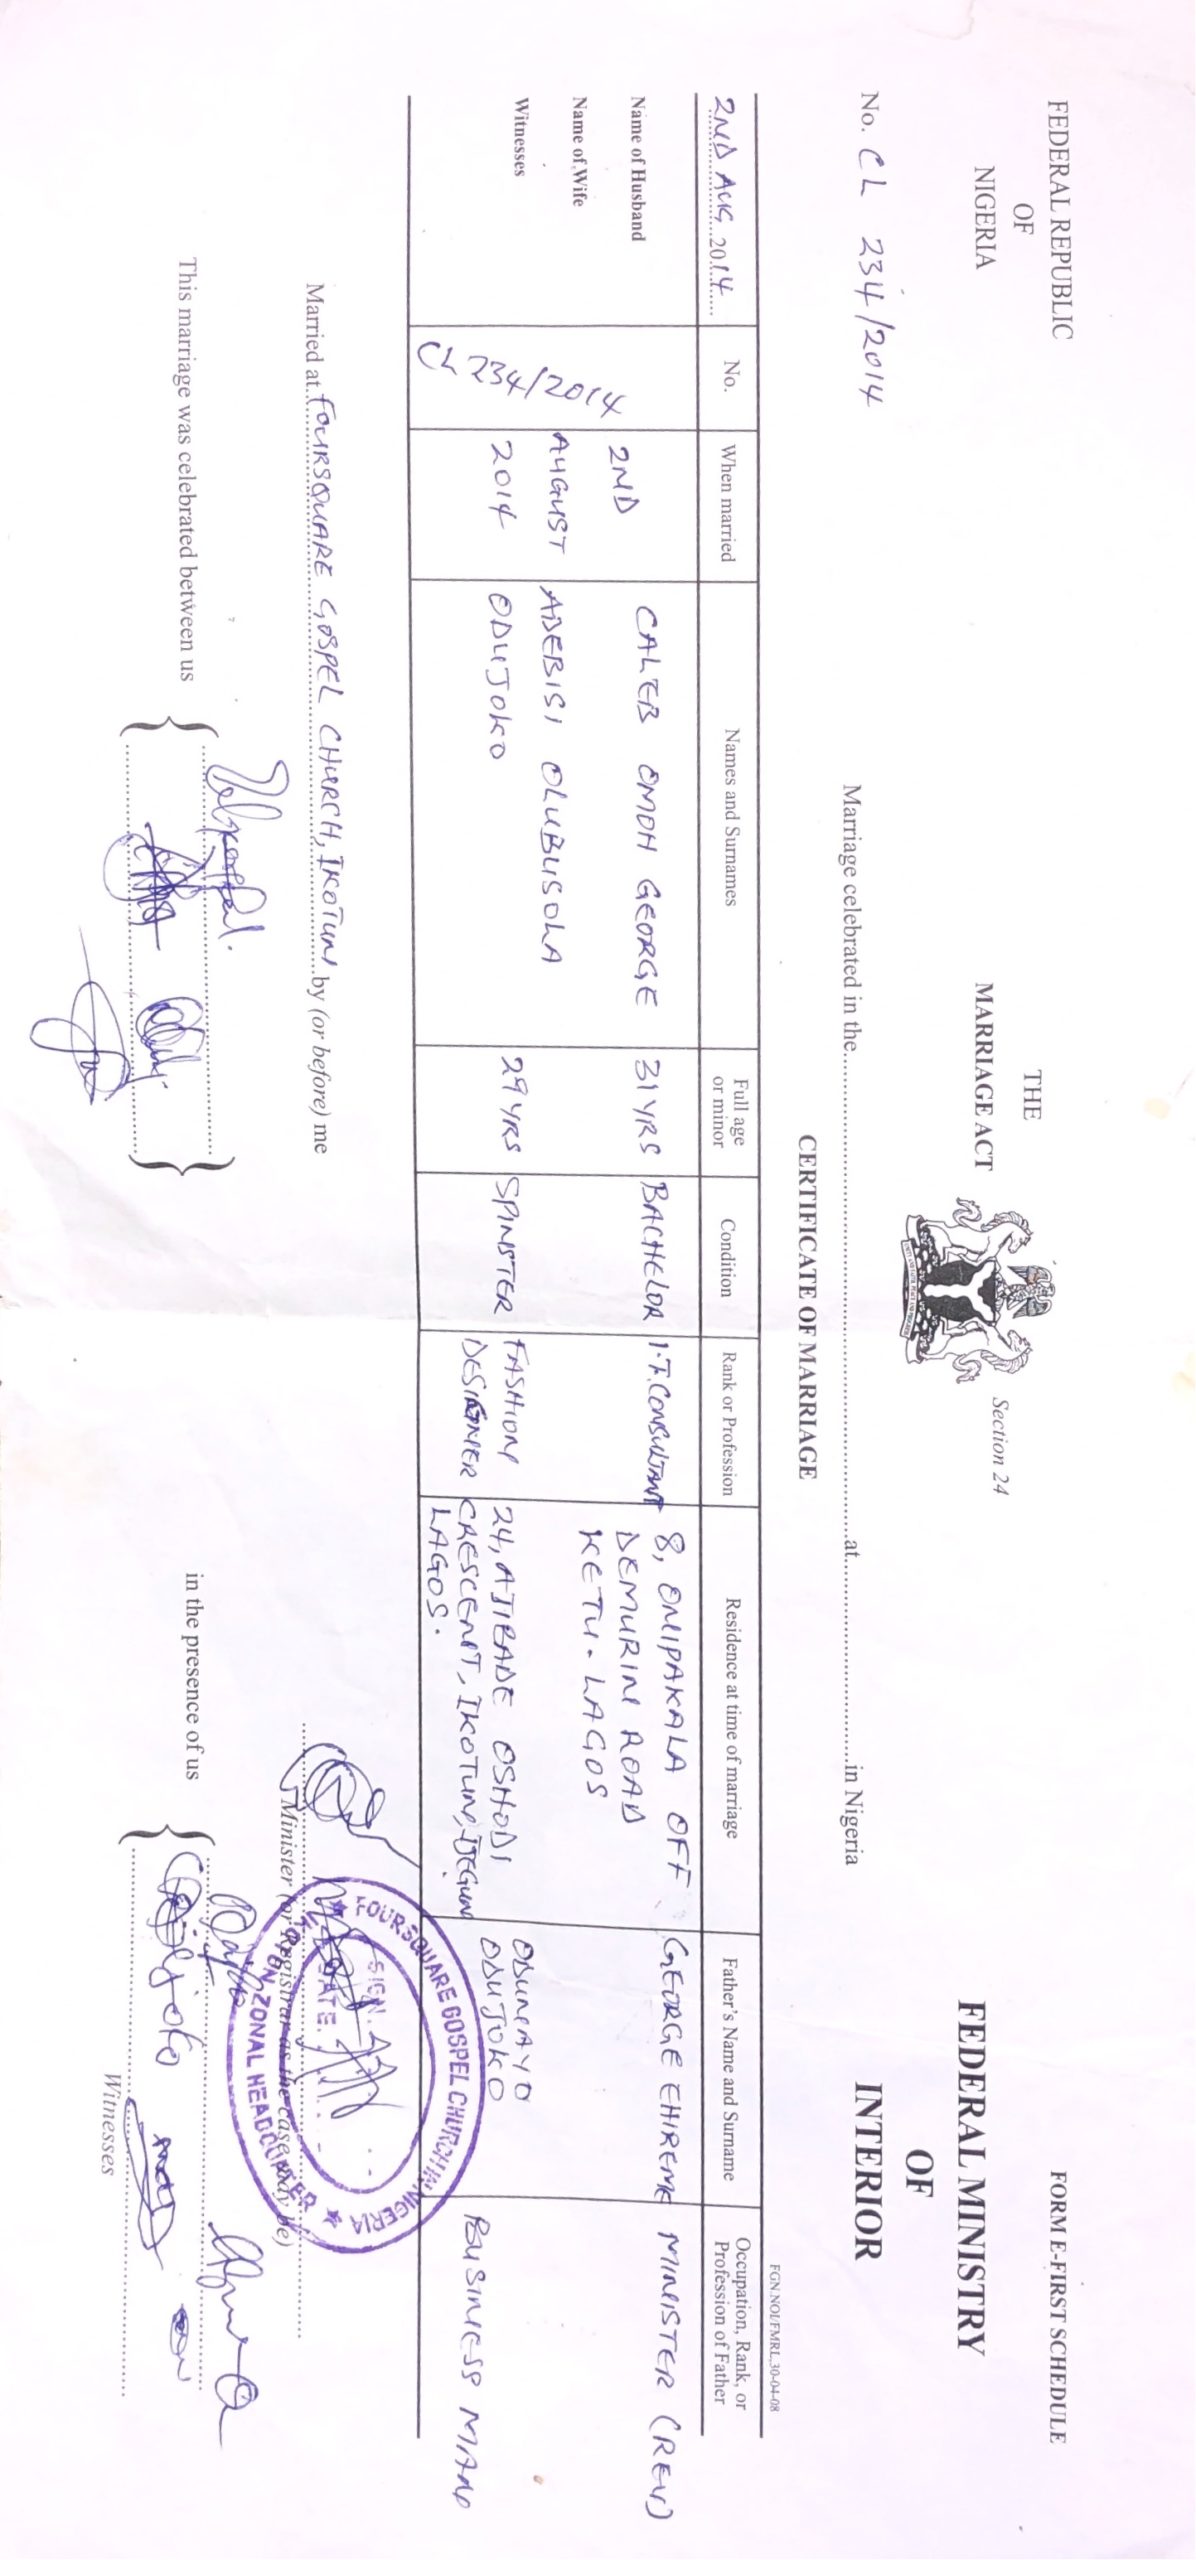 FEDERAL REPUBLIC
OF
NIGERIA
THE
MARRIAGE ACT
Section 24
FORM E-FIRST SCHEDULE
FEDERAL MINISTRY
OF
INTERIOR
No. CL 234/2014
Marriage celebrated in the..............................at..............................in Nigeria
CERTIFICATE OF MARRIAGE
FGN.NOI/FMRI,30-04-08
2ND AUG 2014
No.
When married
Names and Surnames
Full age
or minor
Condition
Rank or Profession
Residence at time of marriage
Father's Name and Surname
Occupation, Rank, or
Profession of Father
Name of Husband
Name of Wife
Witnesses
CL 234/2014
2ND
AUGUST
2014
CALEB OMOH GEORGE
31 YRS
BACHELOR
I.T. CONSULTANT
8, ONIPAKALA OFF
DEMURIN ROAD
KETU - LAGOS
GEORGE EHIREME
MINISTER (REV)
ADEBISI OLUBUSOLA
ODUJOKO
29 YRS
SPINSTER
FASHION
DESIGNER
24, AJIBADE OSHODI
CRESCENT, IKOTUN, IJEGUN
LAGOS.
ODUNAYO
ODUJOKO
BUSINESS MAN
Married at FOURSQUARE GOSPEL CHURCH, IKOTUN by (or before) me
Minister (or Registrar as the case may be)
FOURSQUARE GOSPEL CHURCH IN NIGERIA
ZONAL HEADQUARTER
SIGN.
DATE
This marriage was celebrated between us
in the presence of us
Witnesses